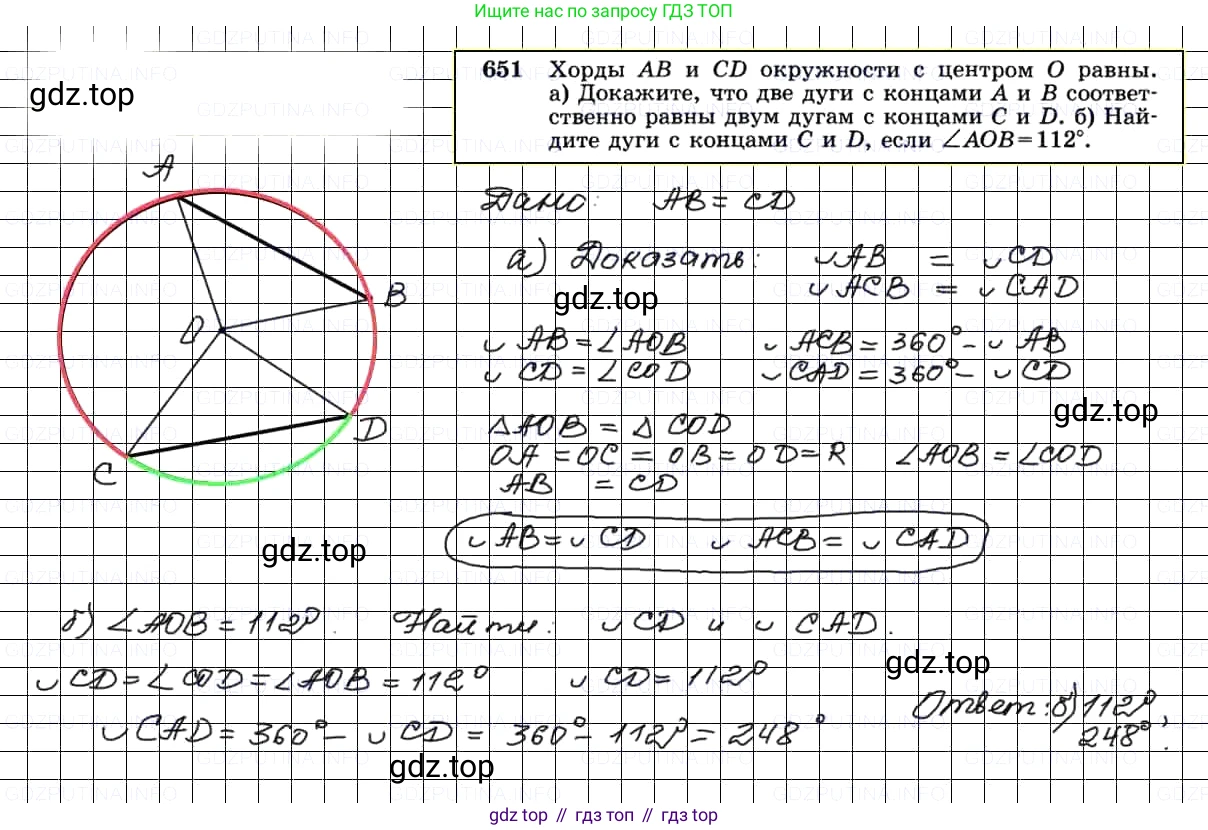 Ищите нас по запросу ГДЗ ТОП
651 Хорды AB и CD окружности с центром O равны.
а) Докажите, что две дуги с концами A и B соответ-
ственно равны двум дугам с концами C и D. б) Най-
дите дуги с концами C и D, если ∠AOB=112°.
gdz.top
A
B
O
D
C
Дано: AB = CD
а) Доказать: ◡AB = ◡CD
◡ACB = ◡CAD
gdz.top
◡AB = ∠AOB ◡ACB = 360° - ◡AB
◡CD = ∠COD ◡CAD = 360° - ◡CD
gdz.top
△AOB = △COD
OA = OC = OB = OD = R ∠AOB = ∠COD
AB = CD
◡AB = ◡CD ◡ACB = ◡CAD
gdz.top
б) ∠AOB = 112°. Найти: ◡CD и ◡CAD.
◡CD = ∠COD = ∠AOB = 112° ◡CD = 112°
gdz.top
◡CAD = 360° - ◡CD = 360° - 112° = 248°
Ответ: б) 112°;
248°.
gdz.top
gdz top // гдз топ // gdz top
GDZPUTINA.INFO